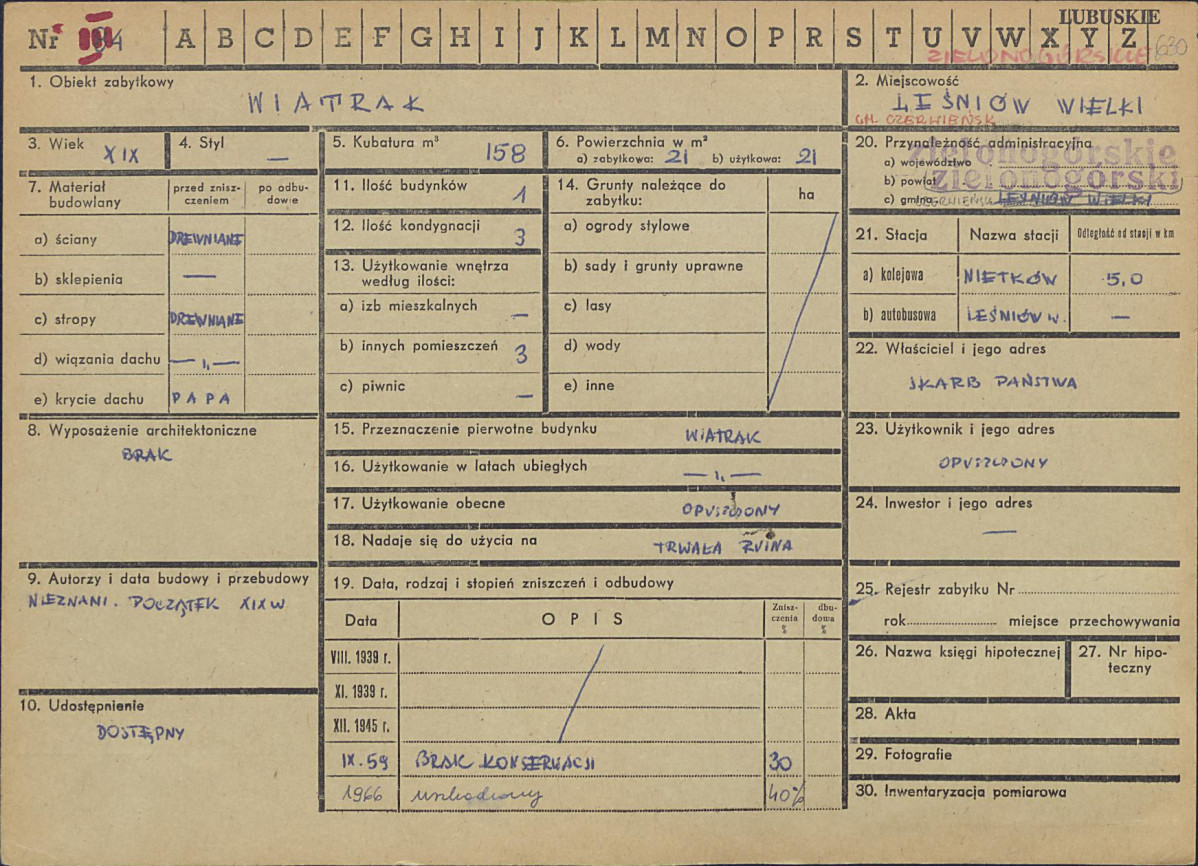 LUBUSKIE
Nr 84 A B C D E F G H I J K L M N O P R S T U V W X Y Z 630
ZIELONOGÓRSKIE
1. Obiekt zabytkowy
WIATRAK
2. Miejscowość
LEŚNIÓW WIELKI
GM. CZERWIEŃSK
3. Wiek XIX
4. Styl —
5. Kubatura m³ 158
6. Powierzchnia w m²
a) zabytkowa: 21 b) użytkowa: 21
20. Przynależność administracyjna
a) województwo zielonogórskie
b) powiat zielonogórski
c) gmina CZERWIEŃSK LEŚNIÓW WIELKI
7. Materiał budowlany
przed zniszczeniem
po odbudowie
a) ściany DREWNIANE
b) sklepienia —
c) stropy DREWNIANE
d) wiązania dachu — „ —
e) krycie dachu PAPA
11. Ilość budynków 1
12. Ilość kondygnacji 3
13. Użytkowanie wnętrza
według ilości:
a) izb mieszkalnych —
b) innych pomieszczeń 3
c) piwnic —
14. Grunty należące do
zabytku:
ha
a) ogrody stylowe
b) sady i grunty uprawne
c) lasy
d) wody
e) inne
21. Stacja Nazwa stacji Odległość od stacji w km
a) kolejowa NIETKÓW 5,0
b) autobusowa LEŚNIÓW W. —
22. Właściciel i jego adres
SKARB PAŃSTWA
8. Wyposażenie architektoniczne
BRAK
15. Przeznaczenie pierwotne budynku WIATRAK
16. Użytkowanie w latach ubiegłych — „ —
17. Użytkowanie obecne OPUSZCZONY
18. Nadaje się do użycia na TRWAŁA RUINA
23. Użytkownik i jego adres
OPUSZCZONY
24. Inwestor i jego adres
—
9. Autorzy i data budowy i przebudowy
NIEZNANI. POCZĄTEK XIX W
19. Data, rodzaj i stopień zniszczeń i odbudowy
Data OPIS Zniszczenia % dbudowa %
VIII. 1939 r.
XI. 1939 r.
XII. 1945 r.
IX.59 BRAK KONSERWACJI 30
1966 uszkodzony 40%
25. Rejestr zabytku Nr
rok miejsce przechowywania
26. Nazwa księgi hipotecznej
27. Nr hipoteczny
10. Udostępnienie
DOSTĘPNY
28. Akta
29. Fotografie
30. Inwentaryzacja pomiarowa